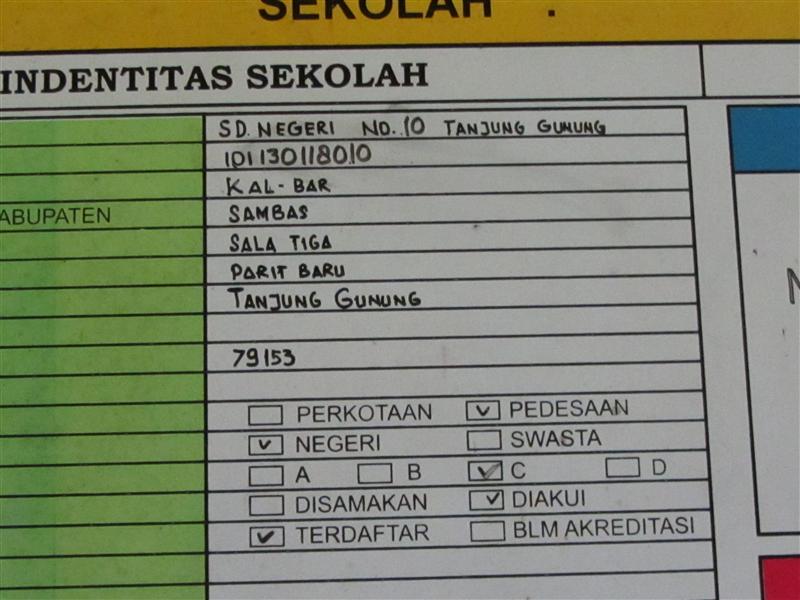 SEKOLAH .
INDENTITAS SEKOLAH
SD. NEGERI NO. 10 TANJUNG GUNUNG
101130118010
KAL-BAR
ABUPATEN SAMBAS
SALA TIGA
PARIT BARU
TANJUNG GUNUNG
79153
PERKOTAAN PEDESAAN
NEGERI SWASTA
A B C D
DISAMAKAN DIAKUI
TERDAFTAR BLM AKREDITASI